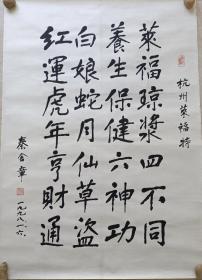 杭州莱福特
萊福晾漿四不同
養生保健六神功
白娘蛇月仙草盜
紅運虎年亨財通
秦含章
一九九八.一.六.